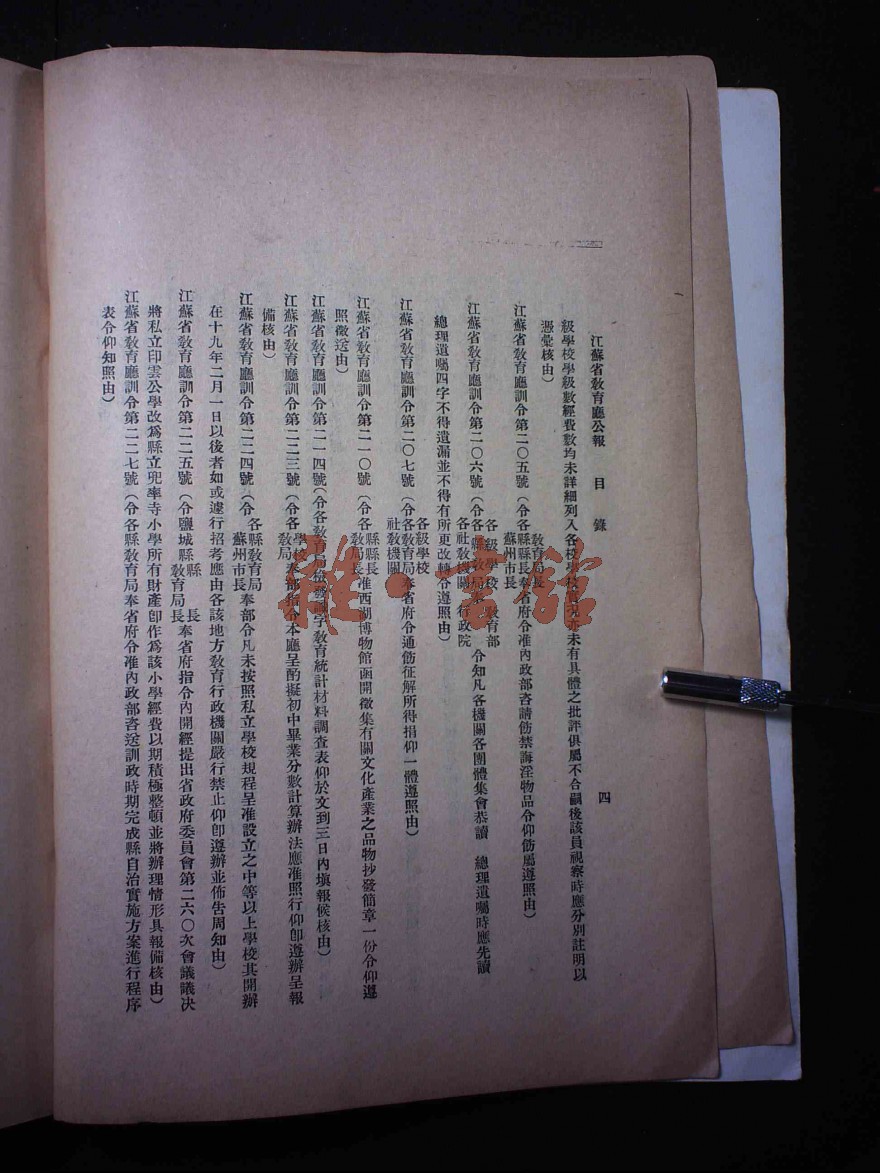 江蘇省教育廳公報　目錄　四
級學校學級數經費數均未詳細列入各校學校實況亦未有具體之批評俱屬不合嗣後該員視察時應分別註明以
憑彙核由）
江蘇省教育廳訓令第二〇五號（令各縣縣長
教育局長
蘇州市長
奉省府令准內政部咨請飭禁誨淫物品令仰飭屬遵照由）
江蘇省教育廳訓令第二〇六號（令
各級學校
各縣教育局
各社教機關
奉
教育部
行政院
令知凡各機關各團體集會恭讀　總理遺囑時應先讀
總理遺囑四字不得遺漏並不得有所更改轉令遵照由）
江蘇省教育廳訓令第二〇七號（令
各級學校
各教育局
社教機關
奉省府令通飭征解所得捐仰一體遵照由）
江蘇省教育廳訓令第二一〇號（令各
縣縣長
教局長
准西湖博物館函開徵集有關文化產業之品物抄發簡章一份令仰遵
照徵送由）
江蘇省教育廳訓令第二一四號（令各教育局檢發 字教育統計材料調查表仰於文到三日內填報候核由）
江蘇省教育廳訓令第二二三號（令各
學校
教局
奉部指令本廳呈酌擬初中畢業分數計算辦法應准照行仰卽遵辦呈報
備核由）
江蘇省教育廳訓令第二二四號（令
各縣教育局
蘇州市長
奉部令凡未按照私立學校規程呈准設立之中等以上學校其開辦
在十九年二月一日以後者如或遽行招考應由各該地方教育行政機關嚴行禁止仰卽遵辦並佈告周知由）
江蘇省教育廳訓令第二二五號（令鹽城縣
縣長
教育局長
奉省府指令內開經提出省政府委員會第二六〇次會議議決
將私立印雲公學改爲縣立兜率寺小學所有財產卽作爲該小學經費以期積極整頓並將辦理情形具報備核由）
江蘇省教育廳訓令第二二七號（令各縣教育局奉省府令准內政部咨送訓政時期完成縣自治實施方案進行程序
表令仰知照由）